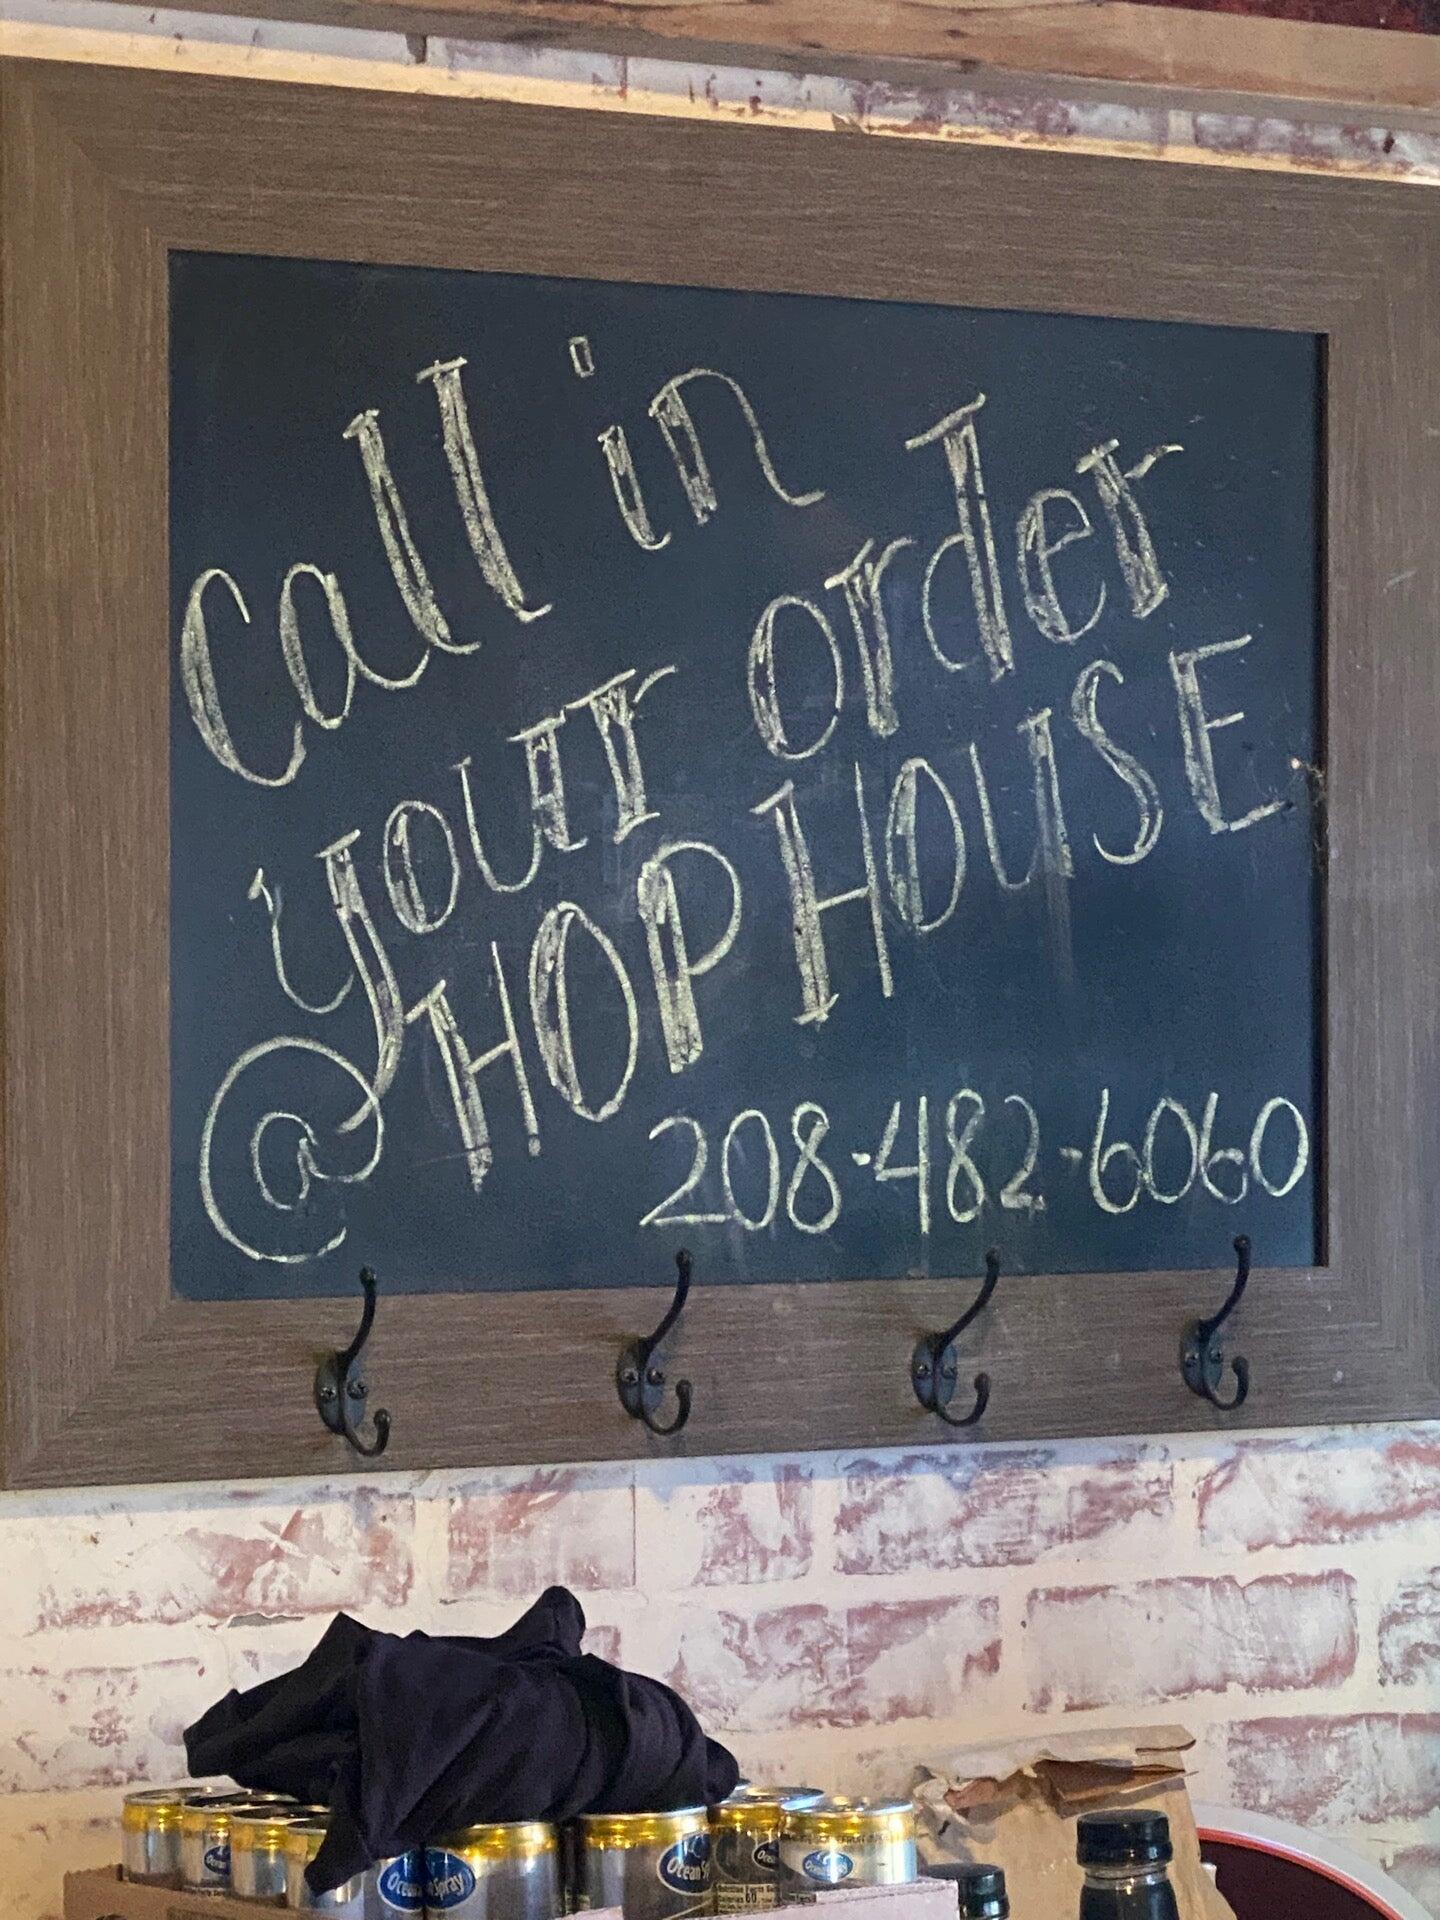 Call in
your order
@ HOP HOUSE
208-482-6060
Ocean Spray
Ocean Spray